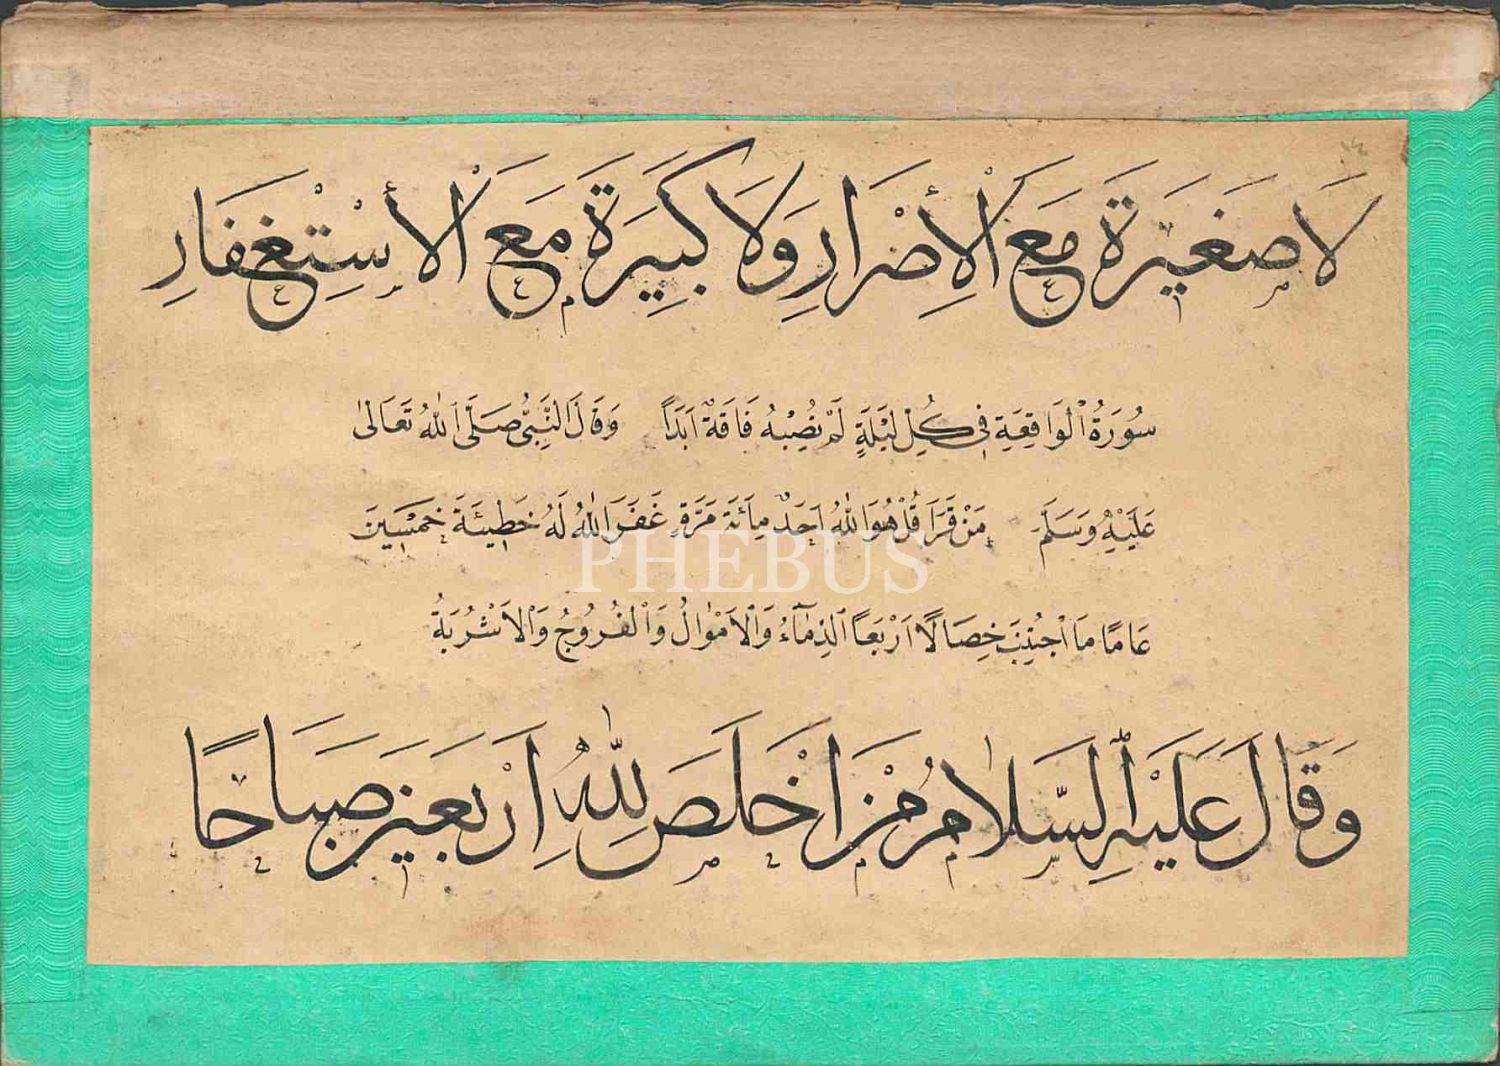 لَا صَغَيَرَةَ مَعَ الْأِصْرَارِ وَلَا كَبِيَرَةَ مَعَ الْأسْتِغْفَارِ
سُورَةُ الْوَاقِعَةِ فِى كُلِّ لَيْلَةٍ لَمْ تُصِبْهُ فَاقَةٌ اَبَدًا وَقَالَ النَّبِىُّ صَلَّى اللهُ تَعَالٰى
عَلَيْهِ وَسَلَّمَ مَنْ قَرَاَ قُلْ هُوَ اللهُ اَحَدٌ مِأَتَةَ مَرَّةٍ غَفَرَ اللهُ لَهُ خَطِيئَةَ خَمْسِينَ
عَامًا مَا اجْتُنِبَ خِصَالًا اَرْبَعًا الدِّمَاءُ وَالْاَمْوَالُ وَالْفُرُوجُ وَالْاَشْرُبَةُ
وَقَالَ عَلَيْهِ السَّلَامُ مَنْ اَخْلَصَ لِلّٰهِ اَرْبَعَينَ صَبَاحًا
PHEBUS